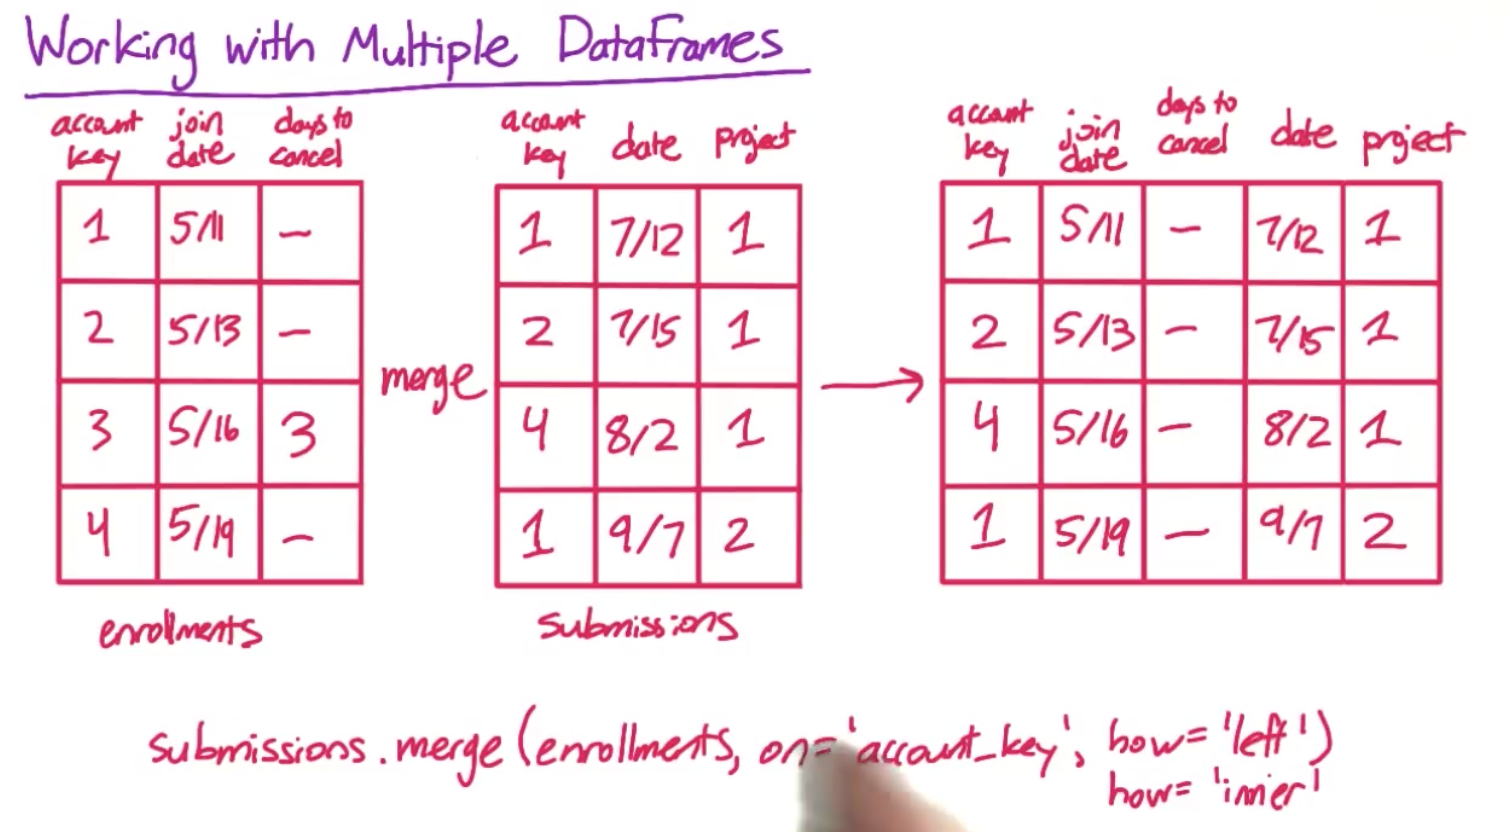 Working with Multiple DataFrames
account key join date days to cancel
1 5/11 —
2 5/13 —
3 5/16 3
4 5/19 —
enrollments
merge
account key date project
1 7/12 1
2 7/15 1
4 8/2 1
1 9/7 2
submissions
account key join date days to cancel date project
1 5/11 — 7/12 1
2 5/13 — 7/15 1
4 5/16 — 8/2 1
1 5/19 — 9/7 2
submissions.merge(enrollments, on='account_key', how='left')
how='inner'